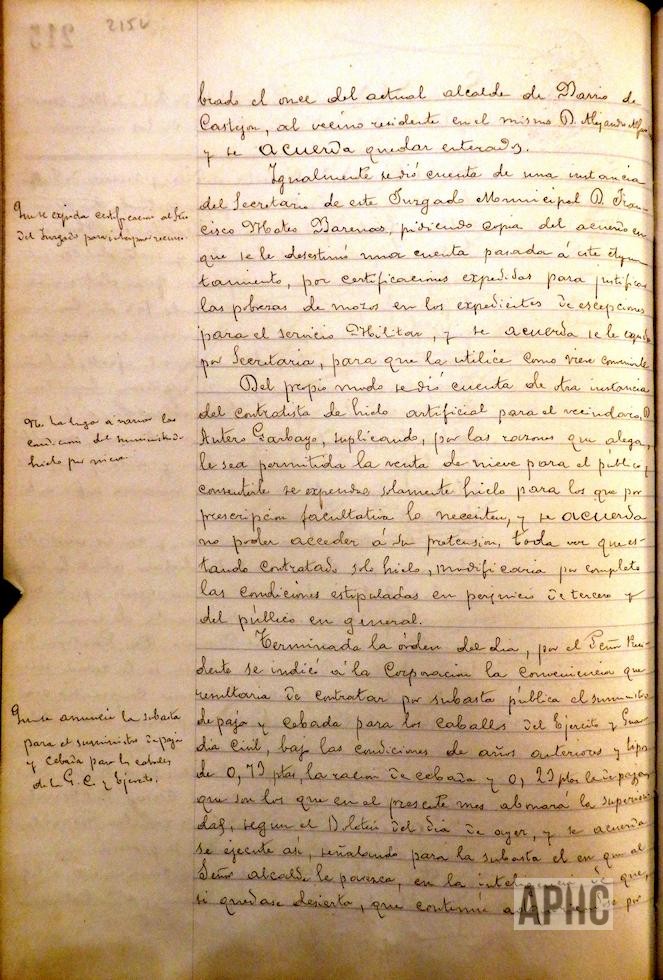 215v
brado el once del actual alcalde de Barrio de
Castejon, al vecino residente en el mismo D. Alejandro
y se acuerda quedar enterados.
Igualmente se dió cuenta de una instancia
del Secretario de este Juzgado Municipal D. Fran-
cisco Mateo Barenas, pidiendo copia del acuerdo en
que se le desestimó una cuenta pasada á este Ayun
tamiento, por certificaciones expedidas para justificar
las pobezas de mozos en los expedientes de escepciones
para el servicio Militar, y se acuerda se le expida
por Secretaria, para que la utilice como viere conveniente
Que se expida certificacion al Srio
del Juzgado para
Del propio modo se dió cuenta de otra instancia
del contratista de hielo artificial para el vecindario, D.
Antero Garbayo, suplicando, por las razones que alega,
le sea permitida la venta de nieve para el público, y
consentirle se expenda solamente hielo para los que por
prescripcion facultativa lo necesiten, y se acuerda
no poder acceder á su pretension, toda vez que es-
tando contratado solo hielo, modificaria por completo
las condiciones estipuladas en perjuicio de tercero y
del público en general.
No ha lugar a variar las
condiciones del suministro de
hielo por nieve.
Terminada la órden del dia, por el Señor Presi-
dente se indicó á la Corporacion la conveniencia que
resultaria de contratar por subasta pública el suministro
de paja y cebada para los caballos del Ejercito y Guar
dia Civil, bajo las condiciones de años anteriores y tipos
de 0,73 ptas, la racion de cebada y 0,23 ptas la de paja,
que son los que en el presente mes abonará la superiori
dad, segun el Boletin del dia de ayer, y se acuerda
se ejecute asi, señalando para la subasta el en que al
Señor alcalde le parezca, en la inteligencia de que,
si quedase desierta, que continúe por
Que se anuncie la subasta
para el suministro de paja
y cebada para los caballos
de la G. C. y Ejercito.
APHC